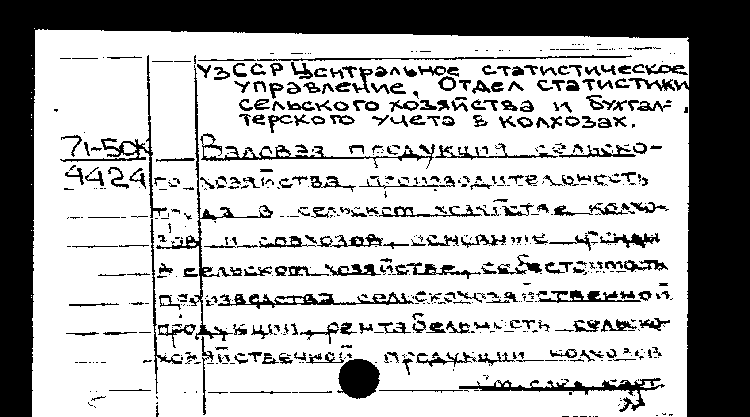 УзССР Центральное статистическое
управление. Отдел статистики
сельского хозяйства и бухгал-
терского учета в колхозах.
71-50К Валовая продукция сельско-
4424 го хозяйства, производительность
труда в сельском хозяйстве колхо-
зов и совхозов, основные фонды
в сельском хозяйстве, себестоимость
производства сельскохозяйственной
продукции, рентабельность сельско-
хозяйственной продукции колхозов
См. след. карт.